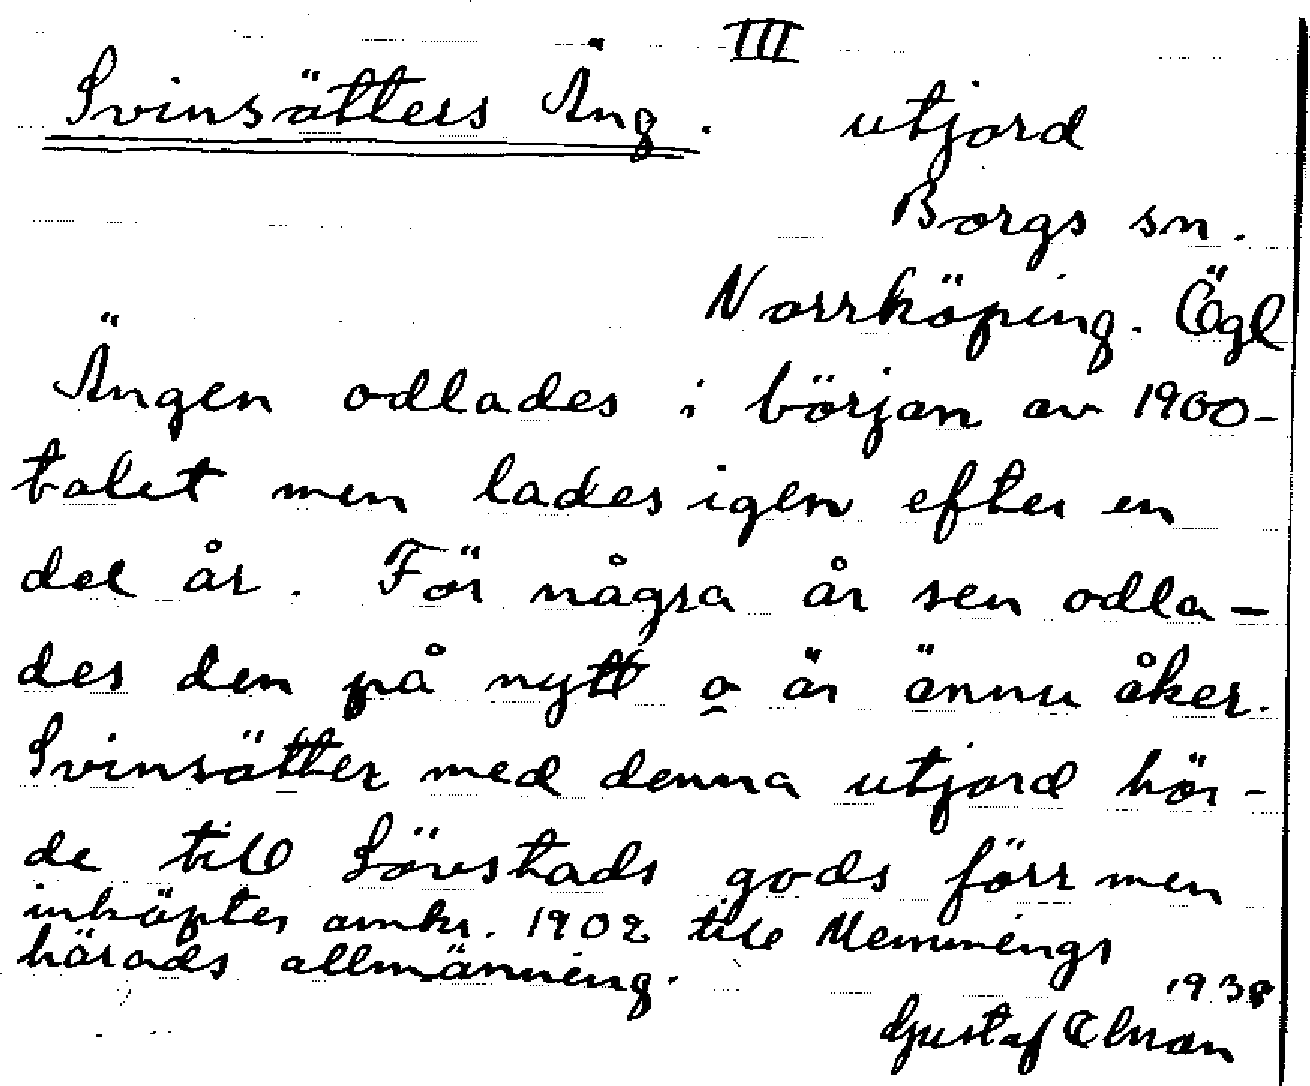 III
Svinsätters Äng. utjord
Borgs sn.
Norrköping. Ögl
Ängen odlades i början av 1900-
talet men lades igen efter en
del år. För några år sen odla-
des den på nytt o är ännu åker.
Svinsätter med denna utjord hör-
de till Lövstads gods förr men
inköptes omkr. 1902 till Memmings
härads allmänning.
1938
Gustaf